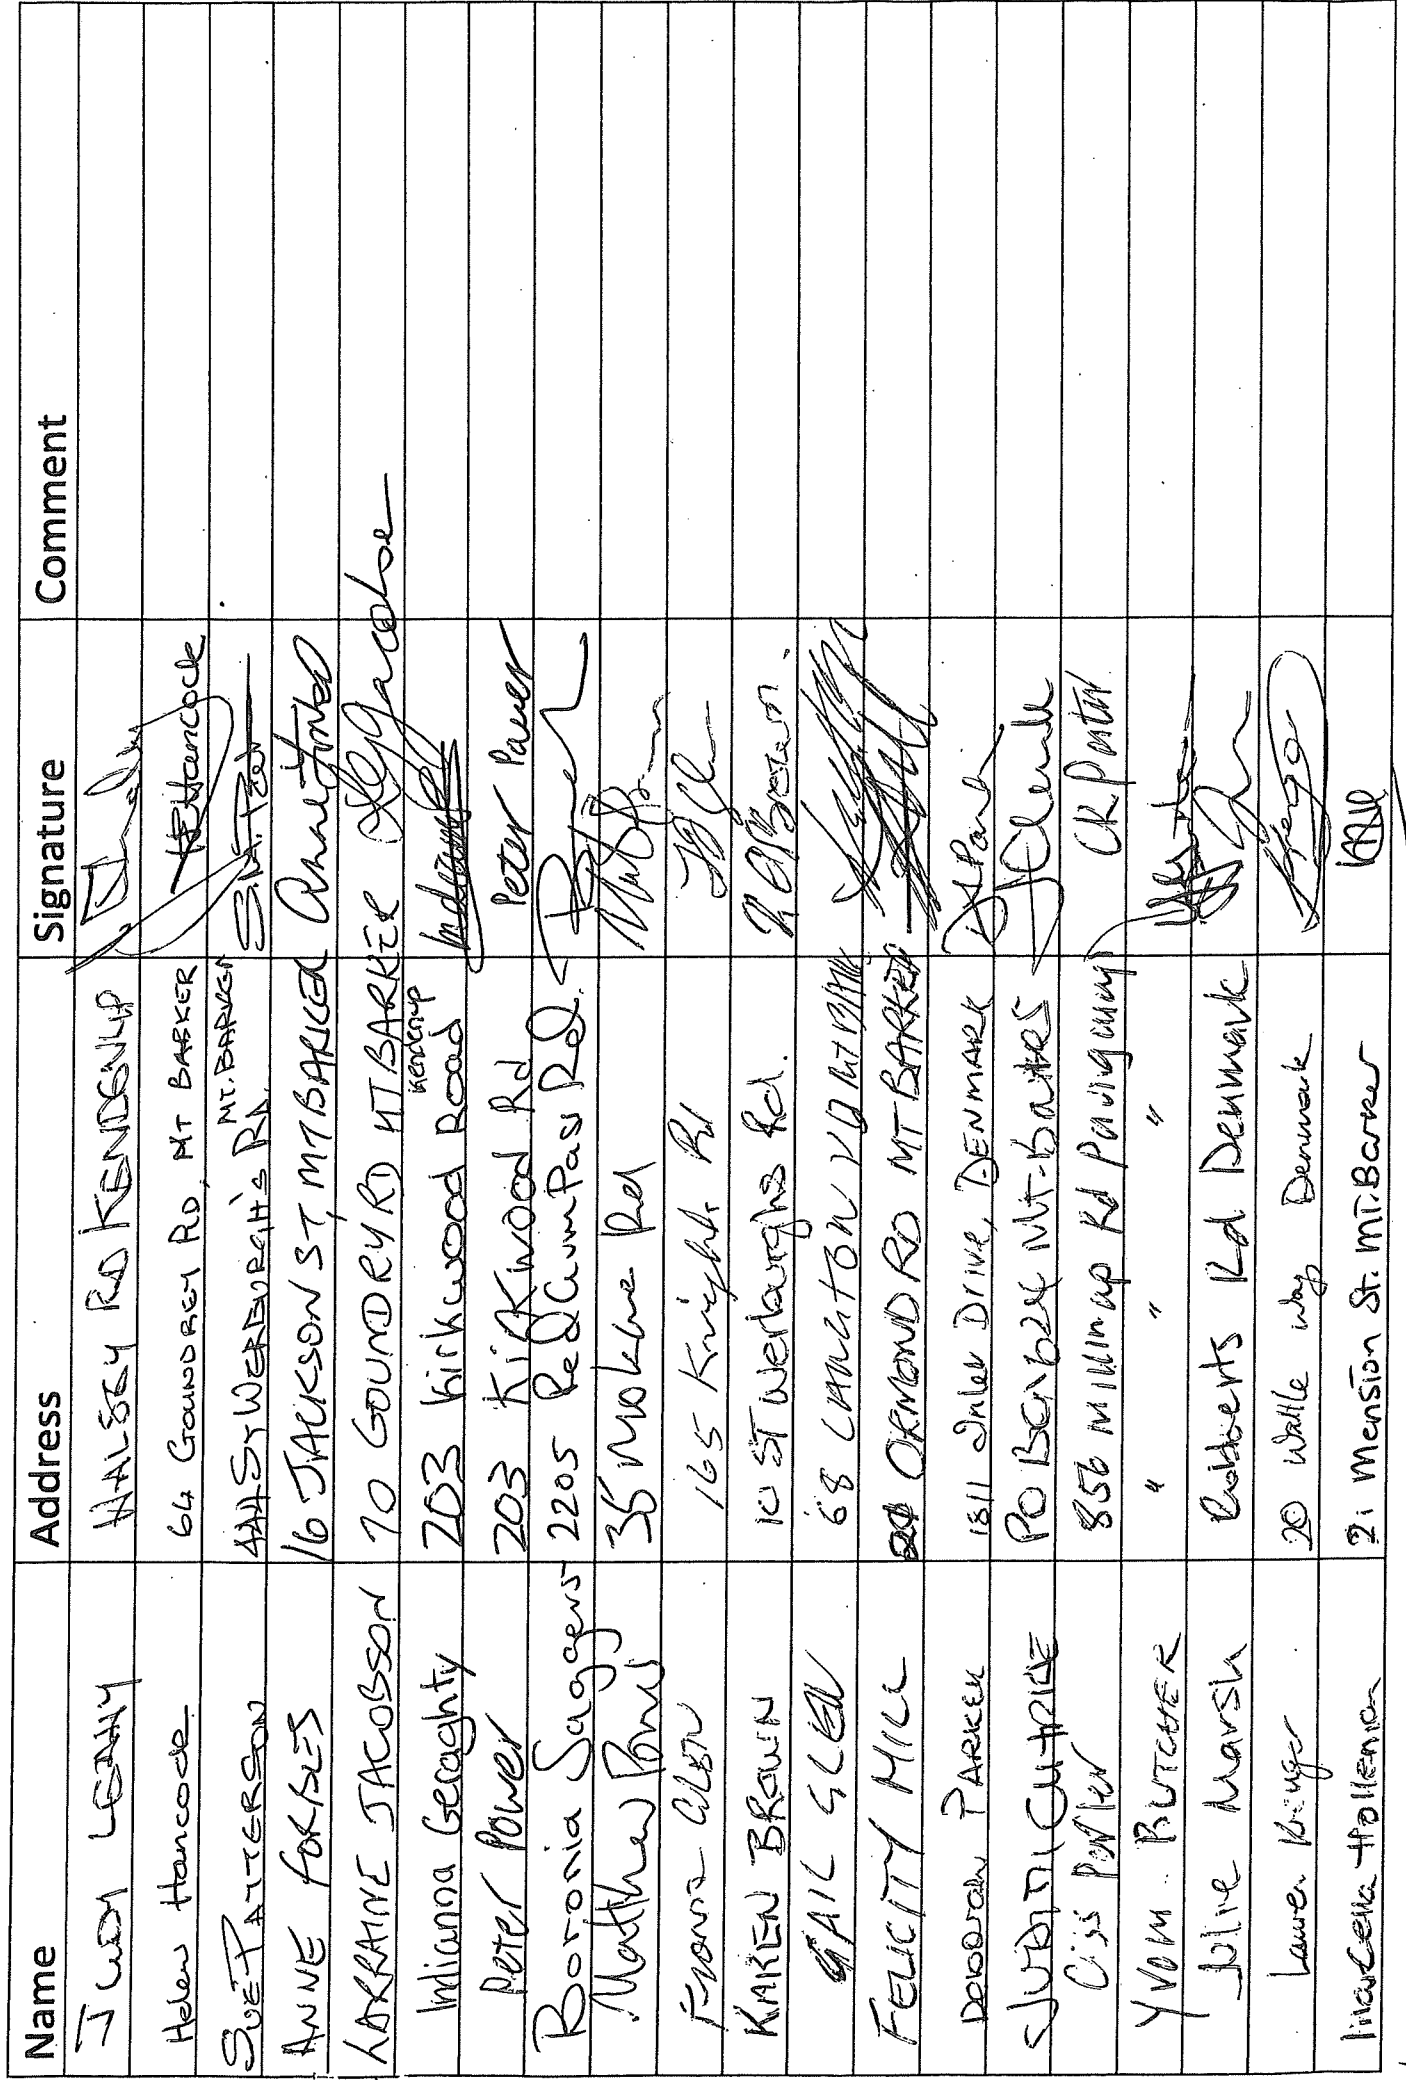 Name Address Signature Comment
JUDY LEAHY HALSEY RD KENDENUP
Helen Hancock 64 GOUNDREY RD, MT BARKER HHancock
SUE PATTERSON 444 ST WERBURGH'S RD, MT. BARKER
ANNE FORBES 16 JACKSON ST, MT BARKER Anne Forbes
LARRAINE JACOBSON 70 GOUNDRY RD MT BARKER
Indianna Geraghty 203 Kirkwood Road Kendenup
Peter Power 203 KirKwood Rd Peter Power
Boronia Saggers 2205 Red Gum Pass Rd.
Matthew 35 Mokare Rd
Fiona Glen 165 Knights Rd
KAREN BROWN 10 ST Werburghs Rd. K Brown.
GAIL GLEN 68 LANGTON RD MT BARK
FELICITY MILL ORMOND RD MT BARKER
Deborah PARKER 1811 Inlet Drive, DENMARK D Park
JUDITH GUTHRIE PO Box 624 Mt. Barker
Ciss Porter 856 Millinup Rd Porongurup CR Porter
YVOM BUTCHER " " "
Julie Marsh Roberts Rd Denmark
Lauren Kruger 20 Wattle Way Denmark
Marcella Hollema 21 Menston St. MT. Barker